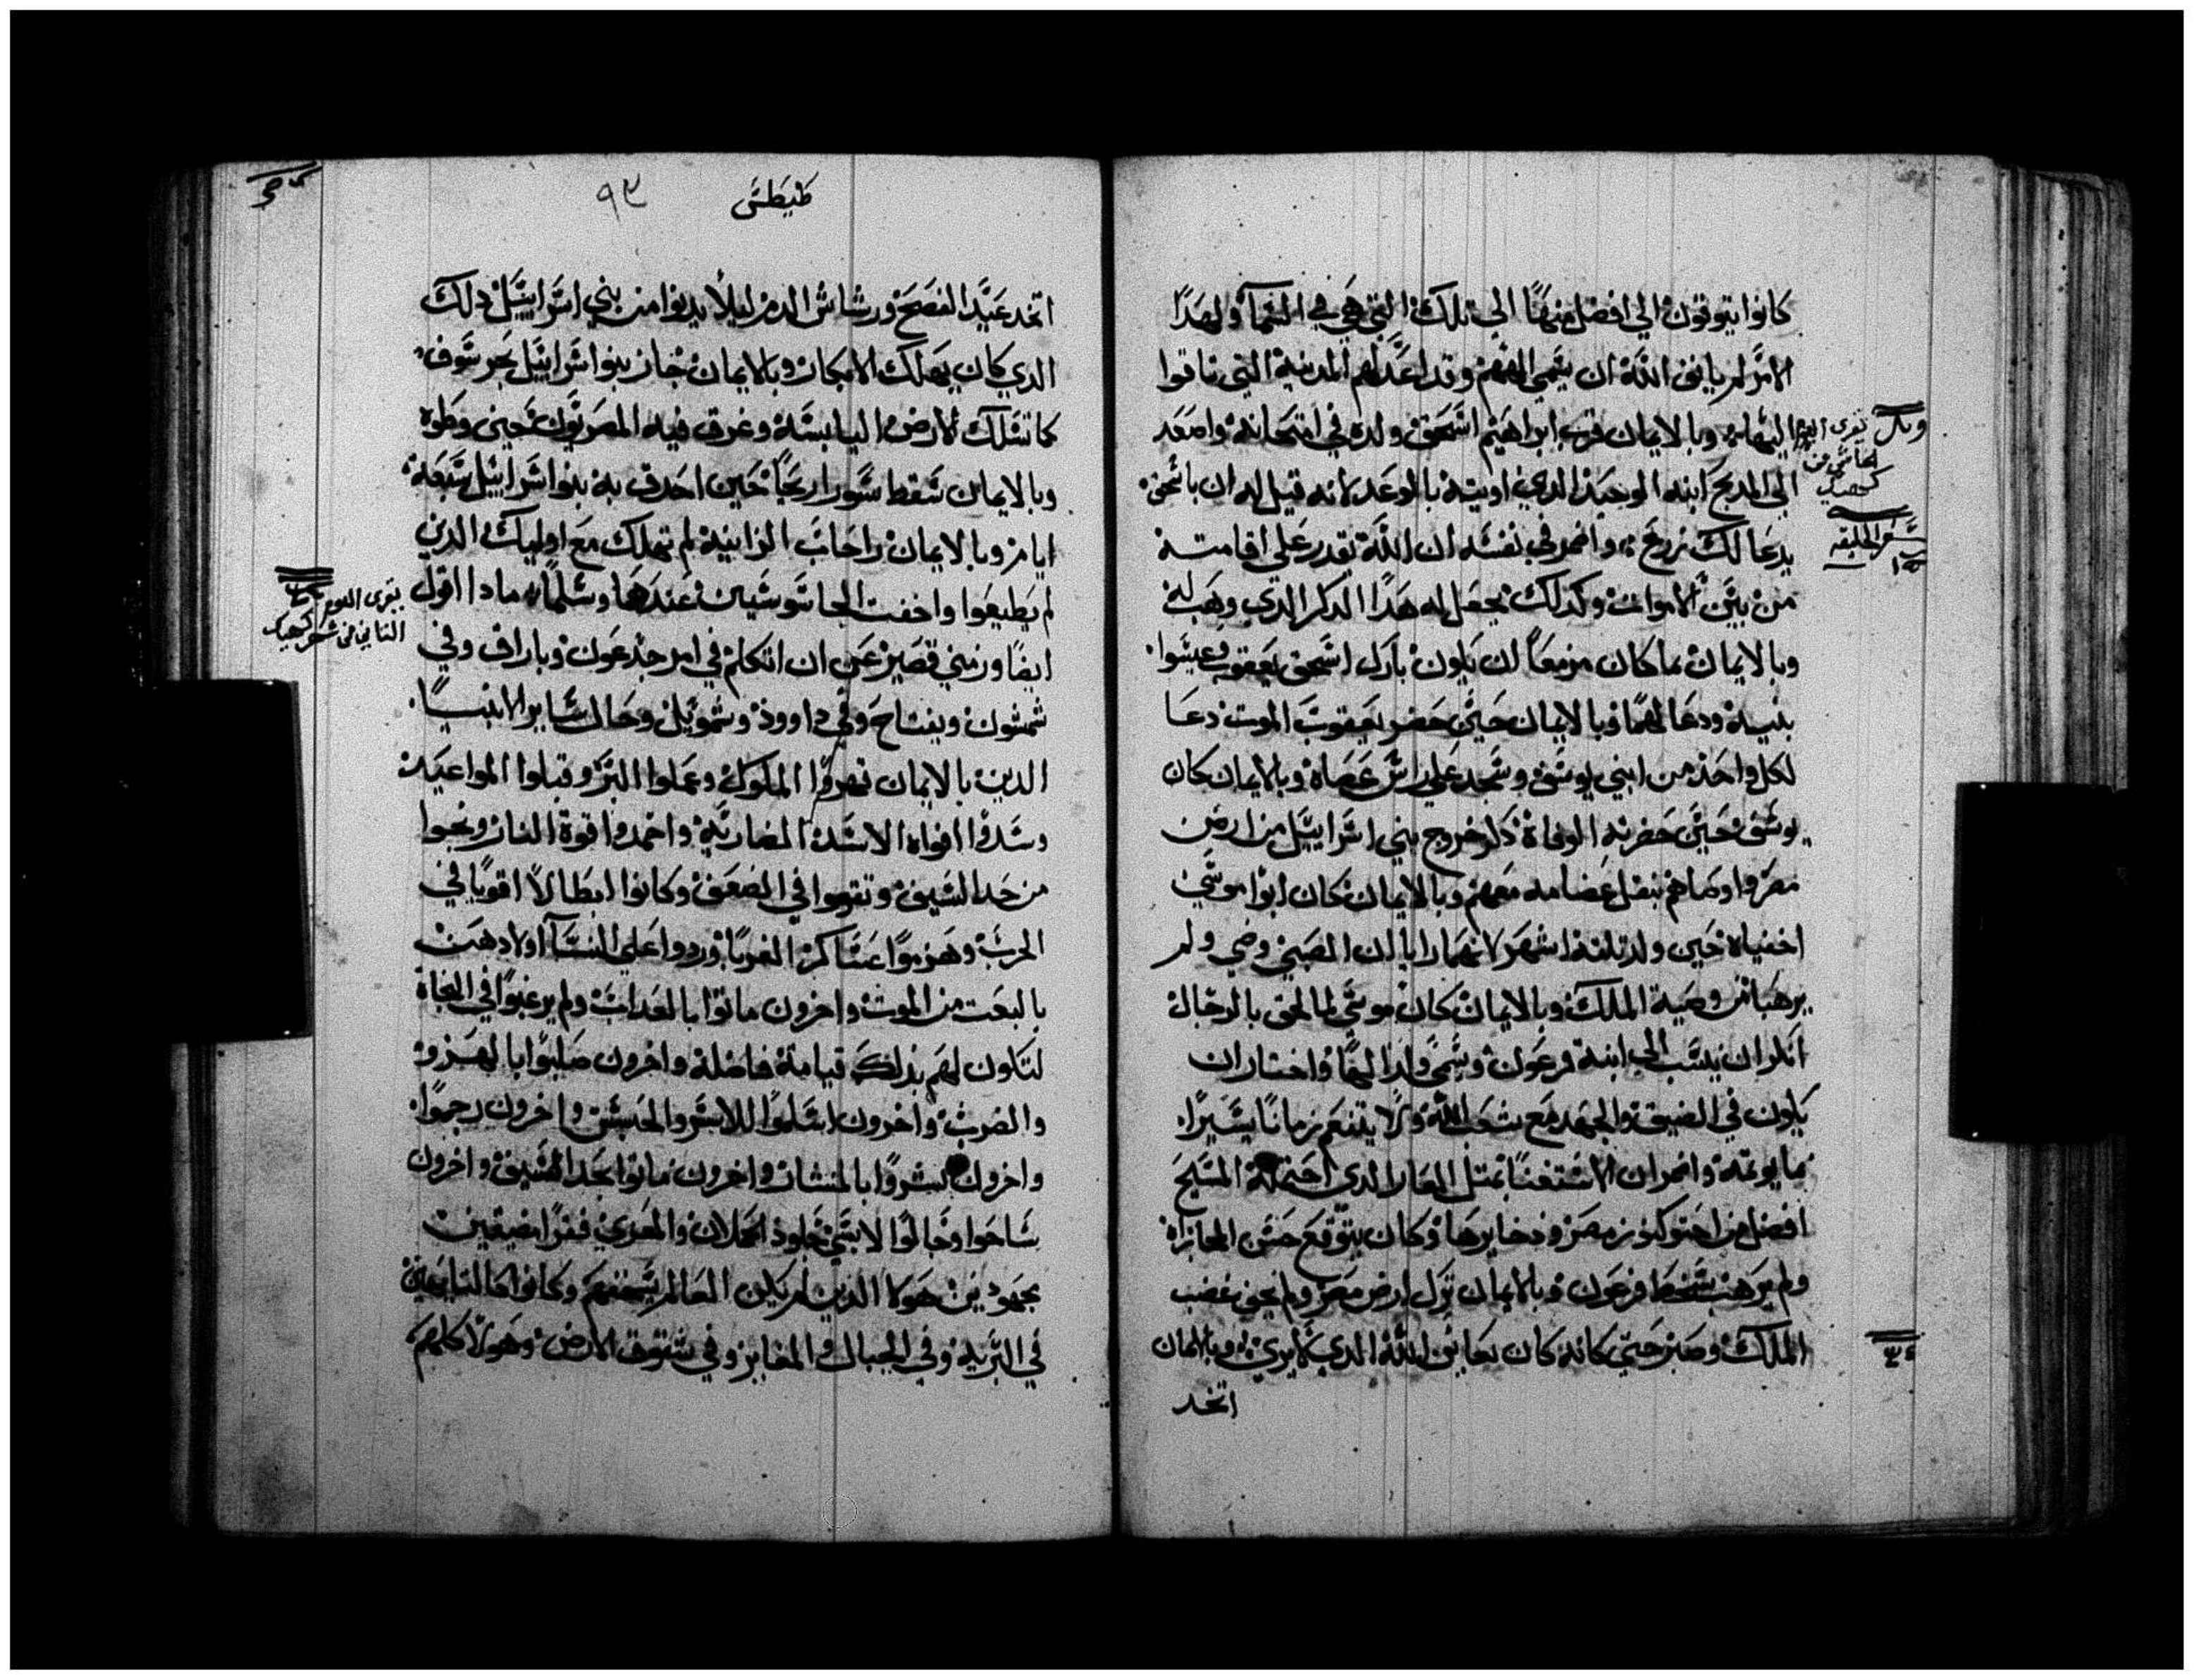 كانوا يتوقون الي افضل منها الي تلك التي هي في السما ولهدا
الامر لم يانف الله ان يسمي الههم وقد اعد لهم المدينة التي تاقوا
اليها وبالايمان قرب ابراهيم اسحق ولده في امتحانه واصعد
الي المدبح ابنه الوحيد الدي اوتيه بالوعد لانه قيل له ان باسحق
يدعا لك زرع واضمر في نفسه ان الله يقدر علي اقامته
من بين الاموات وكدلك جعل له هدا الدكر الدي وهب له
وبالايمان بما كان مزمعا ان يكون بارك اسحق يعقوب وعيسوا
بنيه ودعا لهما وبالايمان حين حضر يعقوب الموت دعا
لكل واحد من ابني يوسف وسجد علي راس عصاه وبالايمان كان
يوسف حين حضرته الوفاة دكر خروج بني اسراييل من ارض
مصر واوصاهم بنقل عضامه معهم وبالايمان كان ابوا موسي
اخفياه حين ولد تلتة اشهر لانهما رايا ان الصبي وضي ولم
يرهبا من وصية الملك وبالايمان كان موسي لما لحق بالرجال
انكر ان ينسب الي ابنة فرعون ويسمي ولدا لها واختار ان
يكون في الضيق والجهد مع شعب الله ولا يتنعم زمانا يسيرا
بما يوتمه واضمر ان الاستغنا بمتل العار الدي احتمله المسيح
افضل من احتو كنوز مصر ودخايرها وكان يتوقع حسن المجازاه
ولم يرهب سخط فرعون وبالايمان ترك ارض مصر ولم يخف غضب
الملك وصبر حتي كانه كان يعاين الله الدي لا يري وبالايمان
اتخد
يقرى اليوم
الخامس من
كيهك
سفر الخليقه
طيطس
٩٣
اتخد عيد الفصح ورشاش الدم ليلا يدنوا من بني اسراييل دلك
الدي كان يهلك الابكار وبالايمان جاز بنوا اسراييل بحر سوف
كما تسلك الارض اليابسة وغرق فيه المصريون حين وطوه
وبالايمان سقط سور اريحا حين احدق به بنوا اسراييل سبعة
ايام وبالايمان راحاب الزانية لم تهلك مع اوليك الدين
لم يطيعوا واخفت الجاسوسين عندها وسلما مادا اقول
ايضا وزمني قصير عن ان اتكلم في امر جدعون وباراق وفي
شمشون ويفتاح وفي داوود وشمويل وحال ساير الانبيا
الدين بالايمان قهروا الملوك وعملوا البر وقبلوا المواعيد
وسدوا افواه الاسد الضارية واخمدوا قوة النار ونجوا
من حد السيف وتقووا في الضعف وكانوا ابطالا اقويا في
الحرب وهزموا عساكر الغربا وردوا علي النسا اولادهن
بالبعت من الموت واخرون ماتوا بالعداب ولم يرغبوا في النجاة
لتكون لهم بدلك قيامة فاضلة واخرون صلبوا بالهزو
والضرب واخرون اسلموا للاسر والحبس واخرون رجموا
واخرون نشروا بالمنشار واخرون ماتوا بحد السيف واخرون
ساحوا وجالوا لابسي جلود الحملان والمعزي فقرا مضيقين
مجهودين هولا الدين لم يكن العالم يستحقهم وكانوا كالتايهين
في البرية وفي الجبال والمغاير وفي شقوق الارض وهولا كلهم
يقرى اليوم
التاني من شهر كيهك